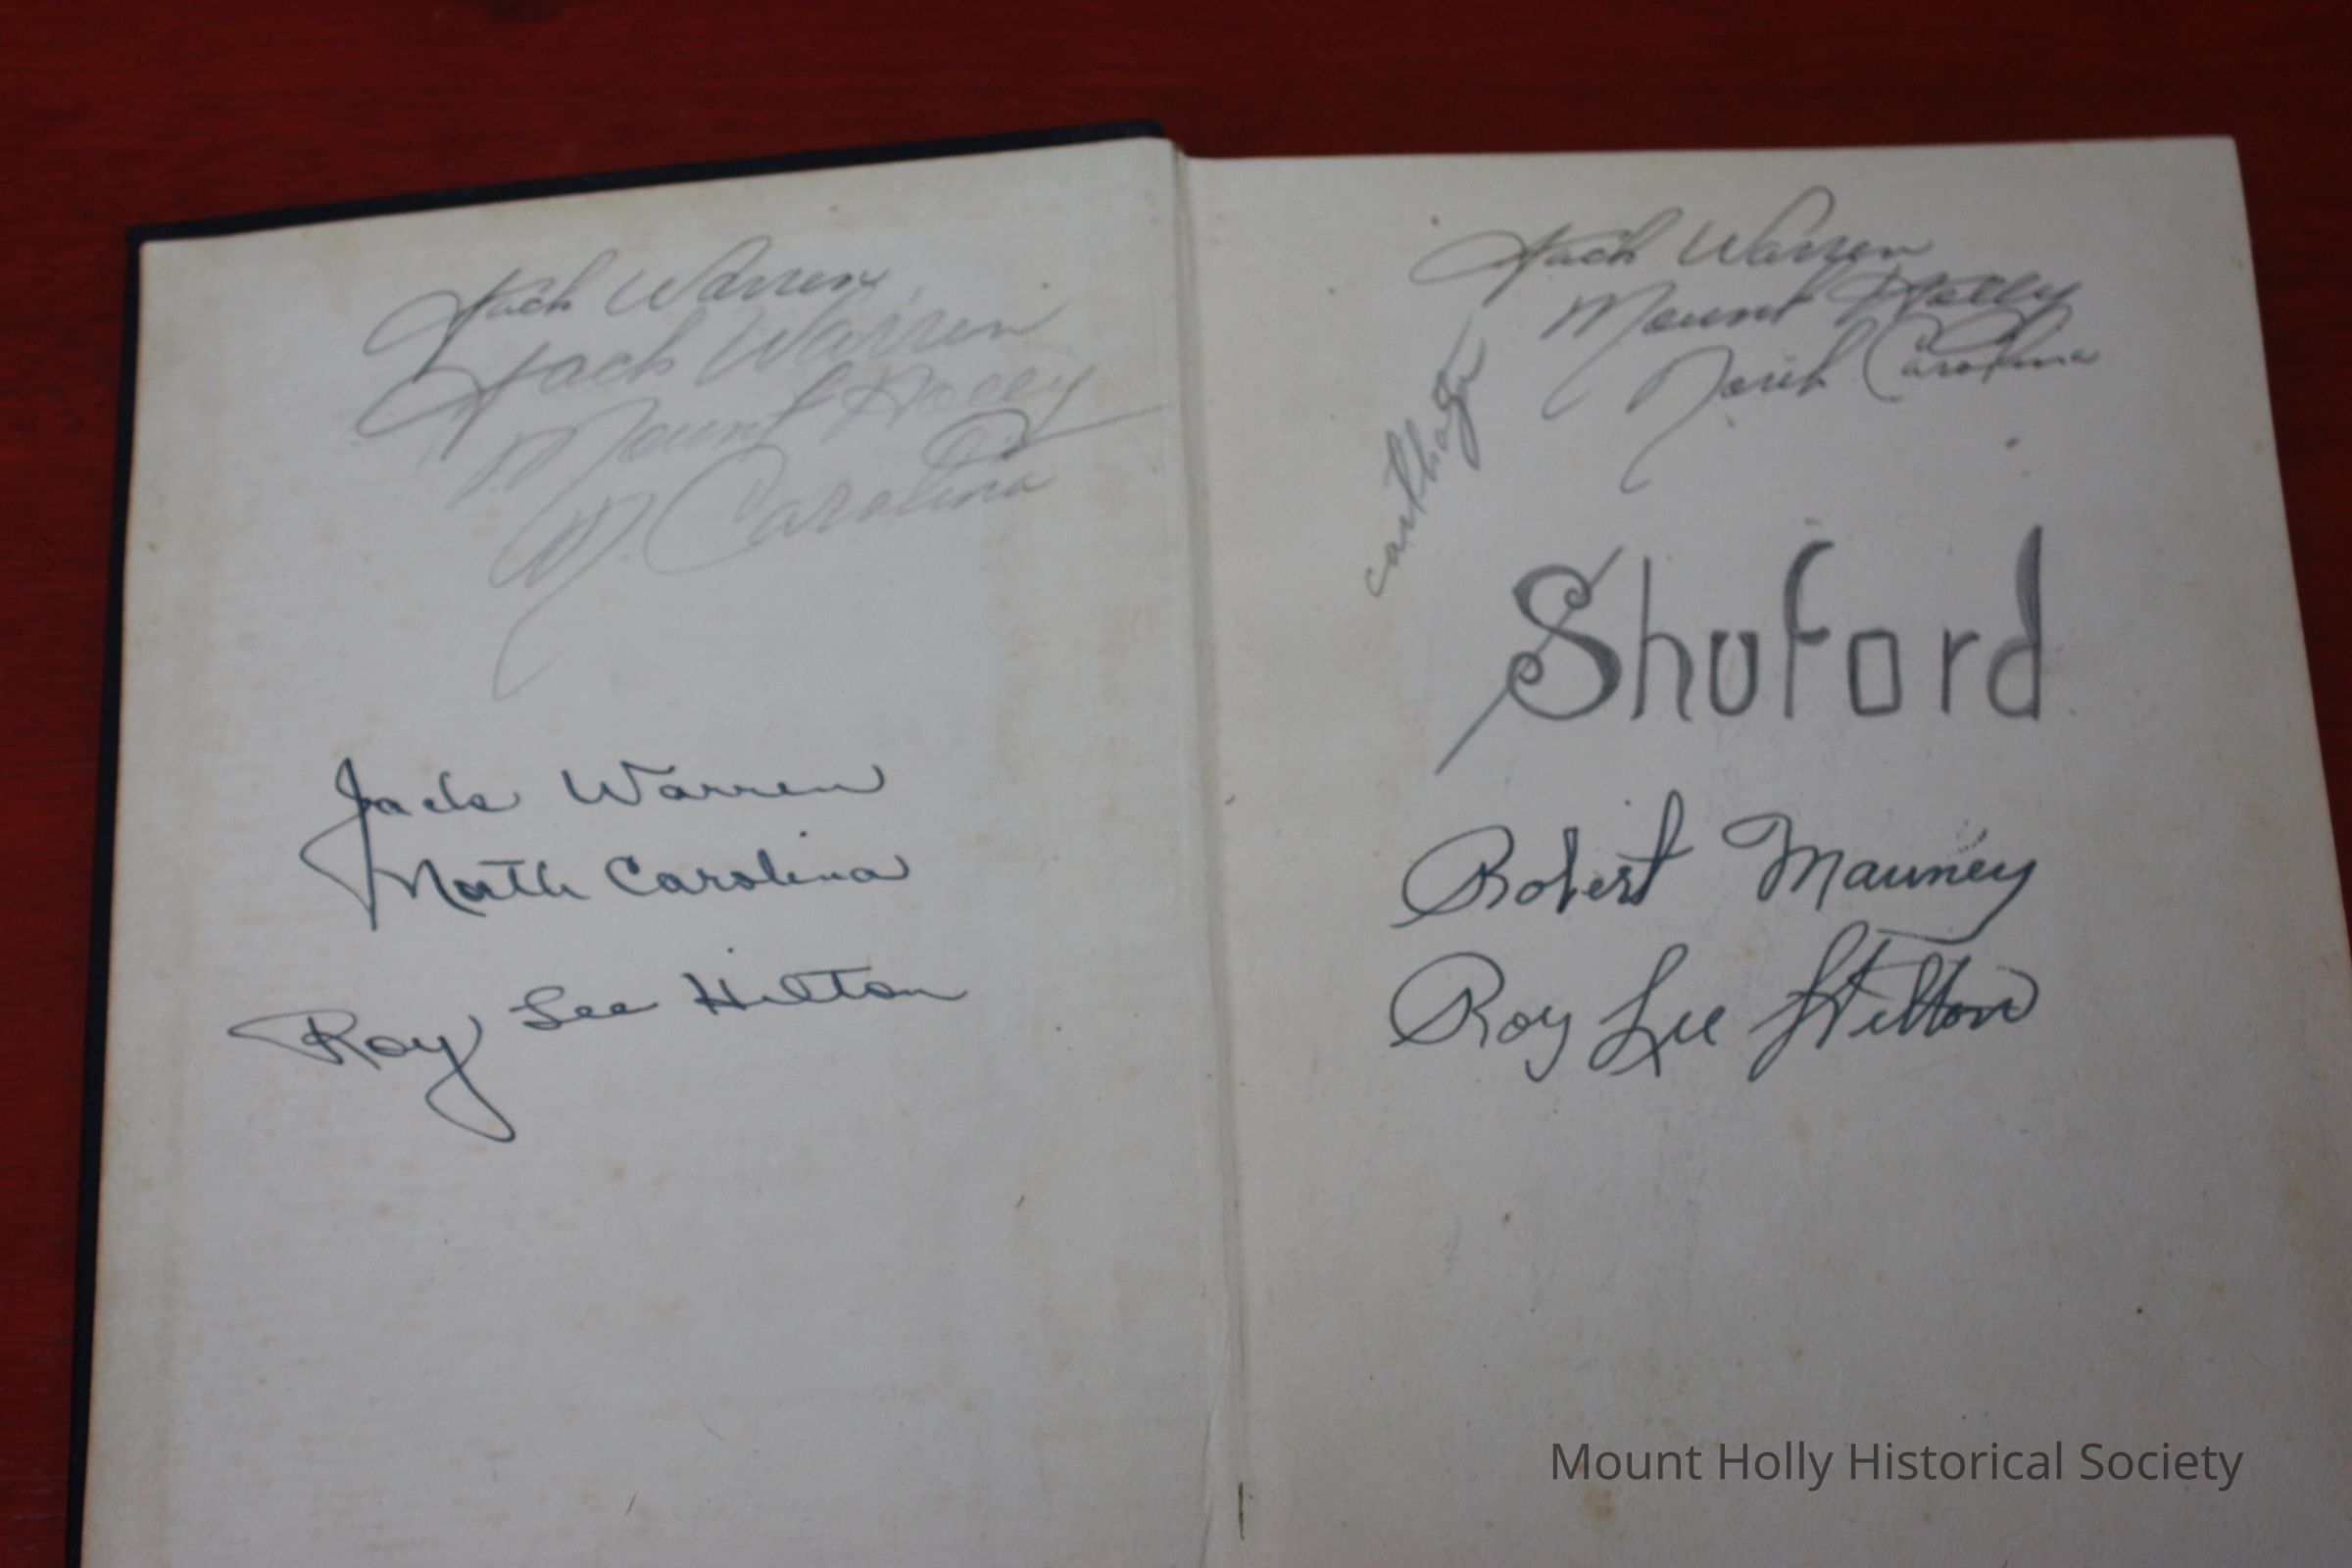 Jack Warren
Jack Warren
Mount Holly
N. Carolina
Jack Warren
North Carolina
Roy Lee Hilton
Jack Warren
Mount Holly
North Carolina
carthage
Shuford
Robert Mauney
Roy Lee Hilton
Mount Holly Historical Society